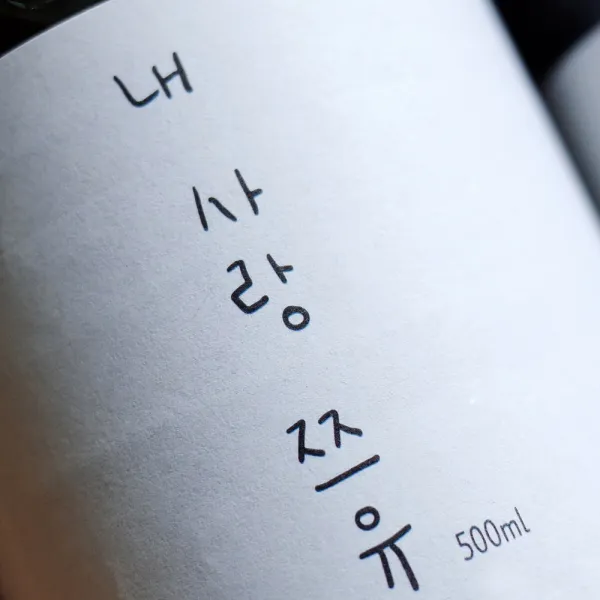 내
사
랑
쯔
유 500ml